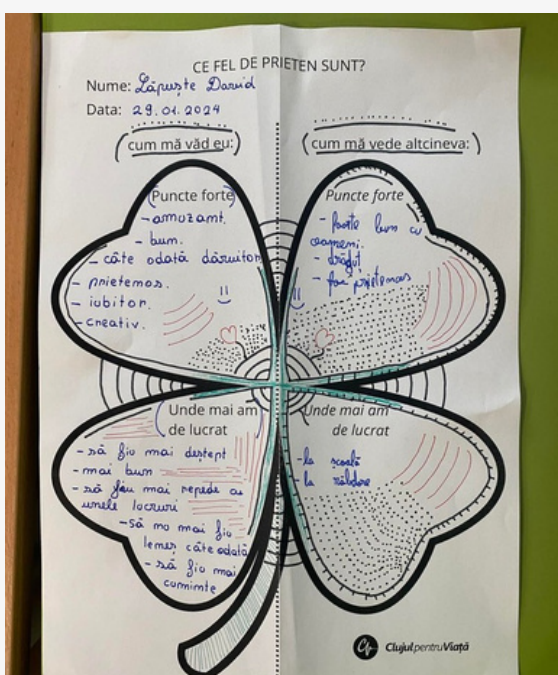 CE FEL DE PRIETEN SUNT?
Nume: Lăpuște David
Data: 29.01.2024
(cum mă văd eu:)
(cum mă vede altcineva:)
(Puncte forte)
-amuzant.
- bun.
- câte odată dăruitor
- prietenos.
- iubitor.
-creativ.
Puncte forte
- foarte bun cu
oameni.
- drăguț
- foc prietenos
(Unde mai am
de lucrat)
- să fiu mai deștept
- mai bun
- să fău mai repede
unele lucruri
-să nu mai fiu
leneș câte odată
- să fiu mai
cuminte
Unde mai am
de lucrat
-la școală
- la răbdare
Clujul pentru Viață